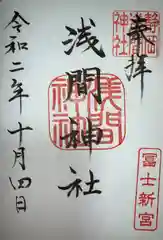 奉拝
静岡
神社
浅間神社
浅間
神社
冨士新宮
令和二年十月四日